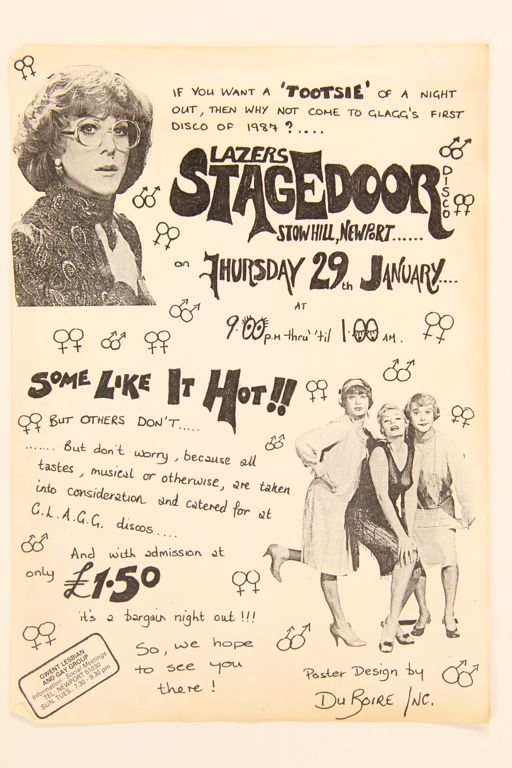 IF YOU WANT A 'TOOTSIE' OF A NIGHT
OUT, THEN WHY NOT COME TO GLAGG'S FIRST
DISCO OF 1987?....
LAZERS
STAGEDOOR
DISCO
STOW HILL, NEWPORT......
on THURSDAY 29th JANUARY....
AT
9.00 p.m thru' 'til 1.00 AM.
SOME LIKE IT HOT!!
BUT OTHERS DON'T.....
....... But don't worry, because all
tastes, musical or otherwise, are taken
into consideration and catered for at
G.L.A.G.G. discos.....
And with admission at
only £1.50
it's a bargain night out!!!
So, we hope
to see you
there!
GWENT LESBIAN
AND GAY GROUP
Information · Social Meetings
TEL: NEWPORT 51030
SUN. TUES., 7.30 - 9.30 pm
Poster Design by
DuBoire Inc.